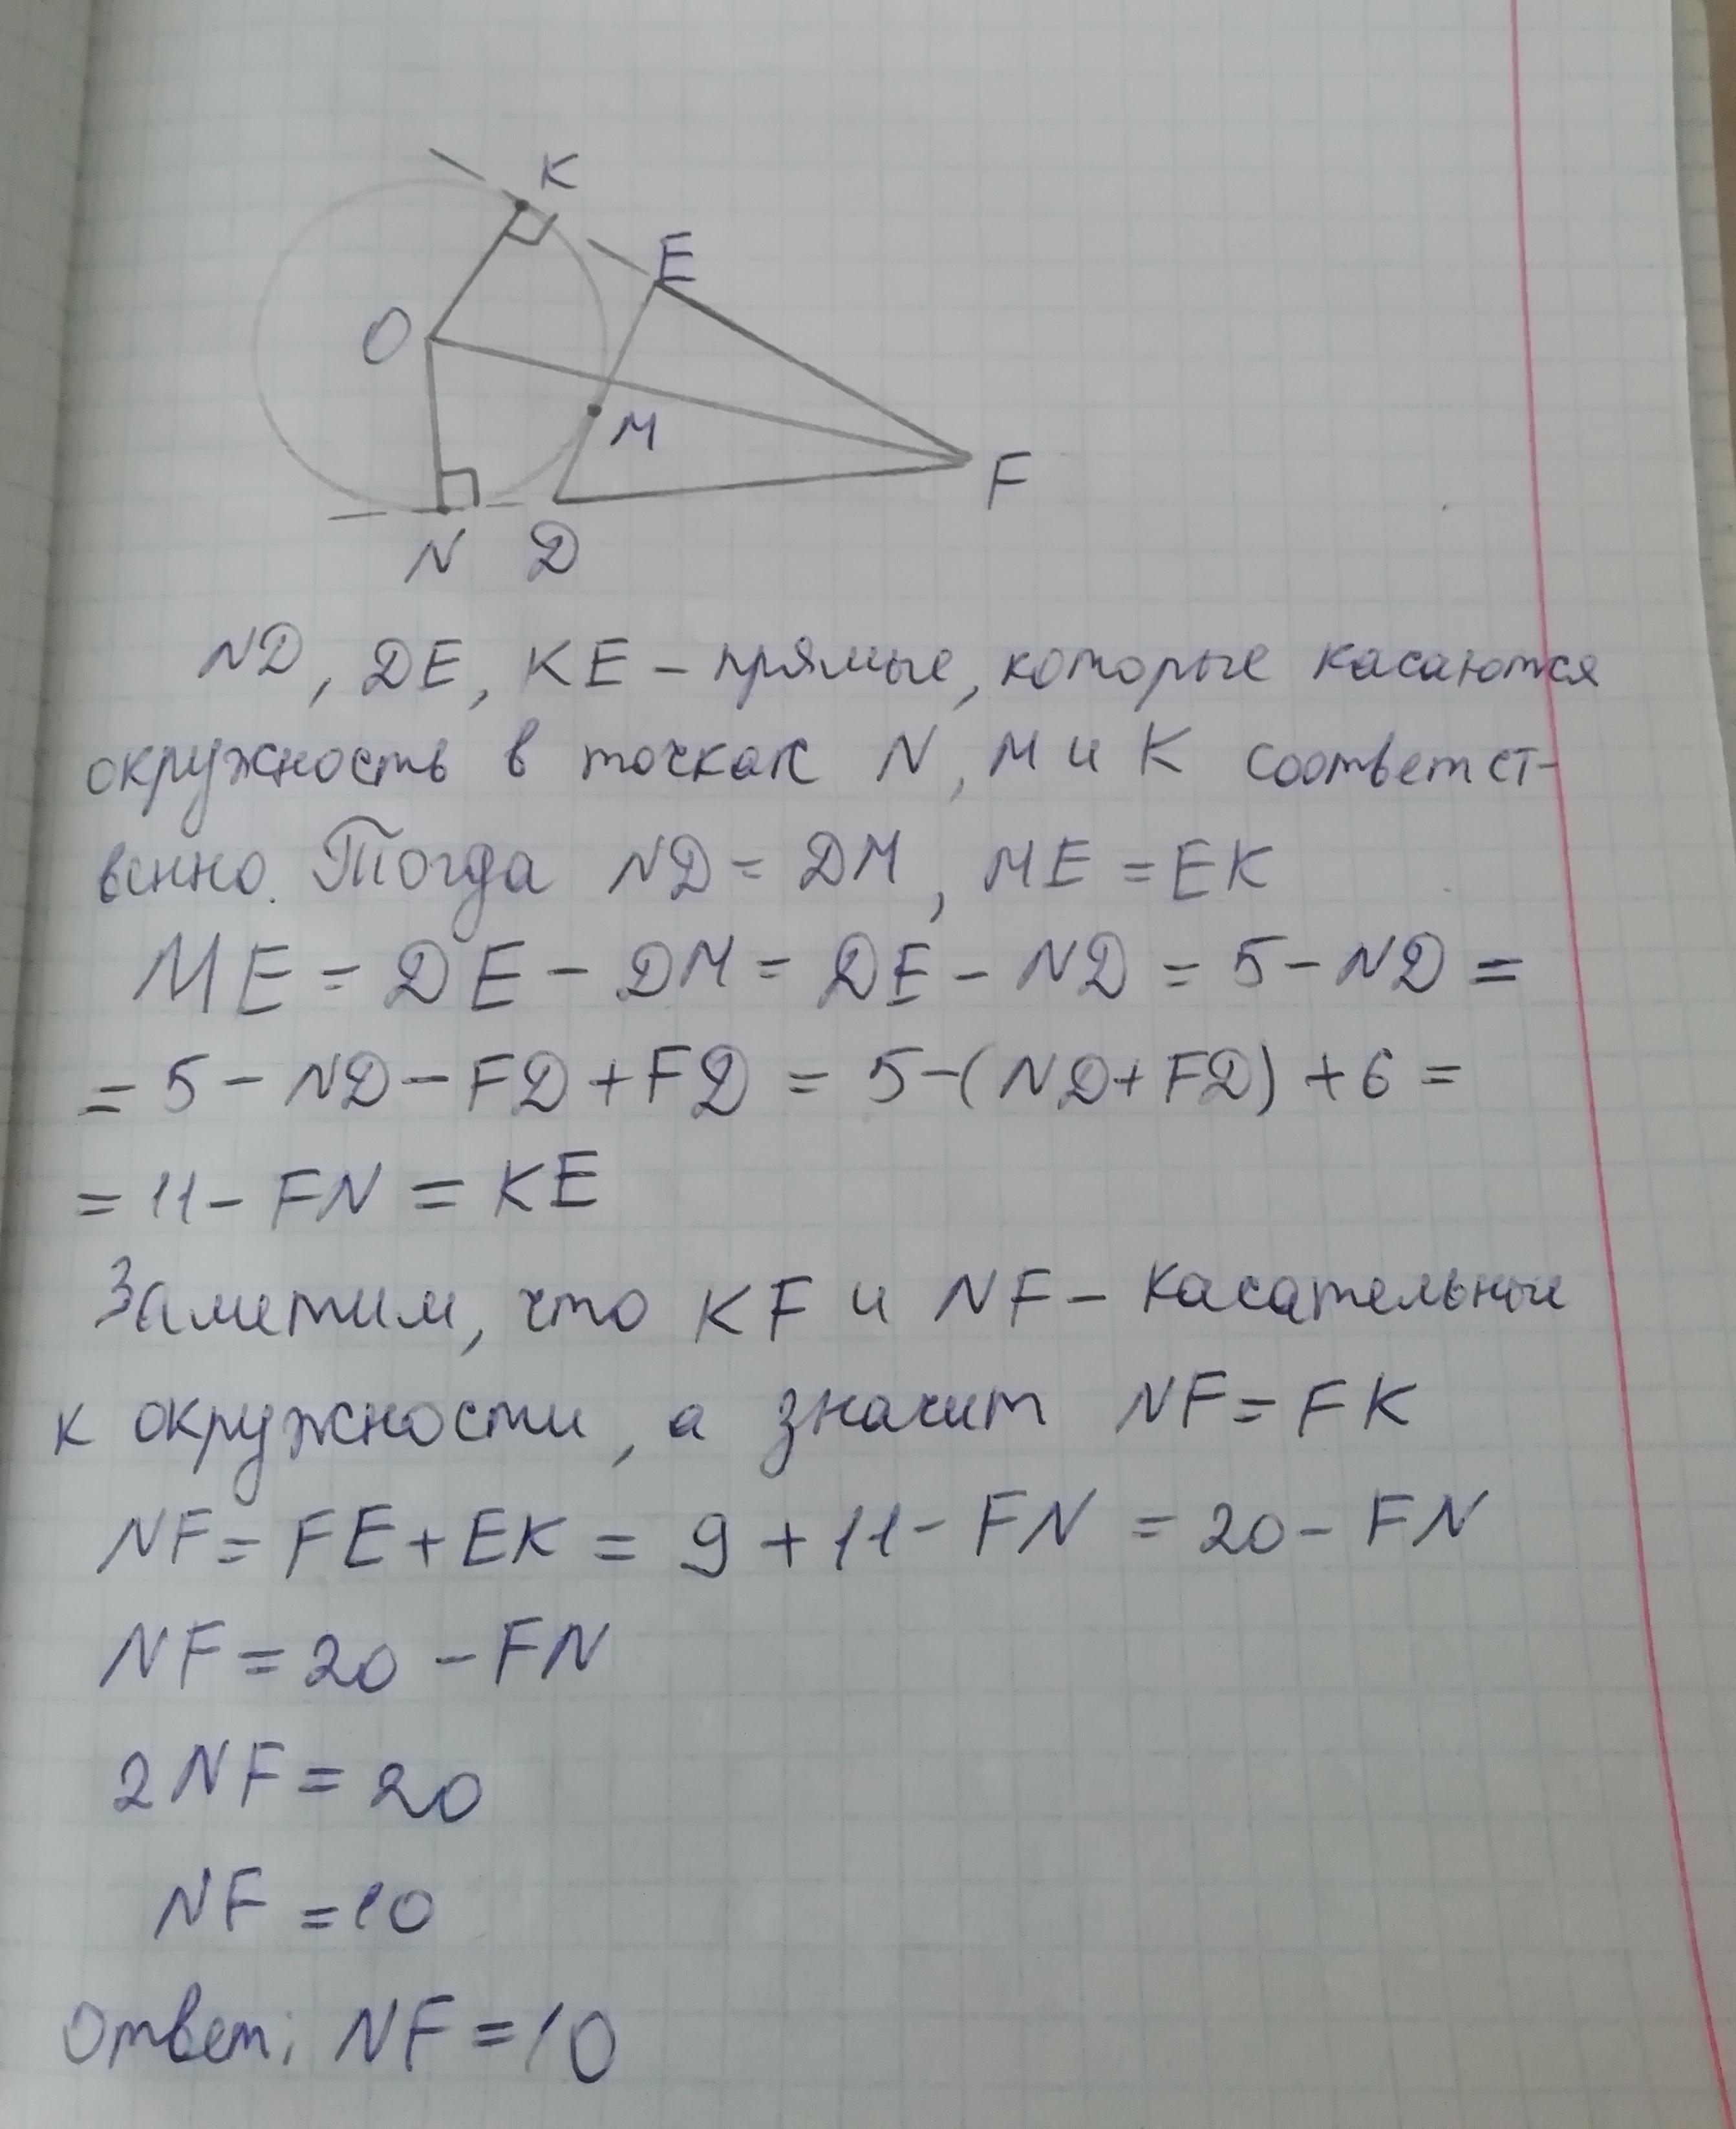 K
E
O
M
F
N D
ND, DE, KE - прямые, которые касаются
окружность в точках N, M и K соответст-
венно. Тогда ND = DM, ME = EK
ME = DE - DM = DE - ND = 5 - ND =
= 5 - ND - FD + FD = 5 - (ND + FD) + 6 =
= 11 - FN = KE
Заметим, что KF и NF - касательные
к окружности, а значит NF = FK
NF = FE + EK = 9 + 11 - FN = 20 - FN
NF = 20 - FN
2NF = 20
NF = 10
Ответ: NF = 10